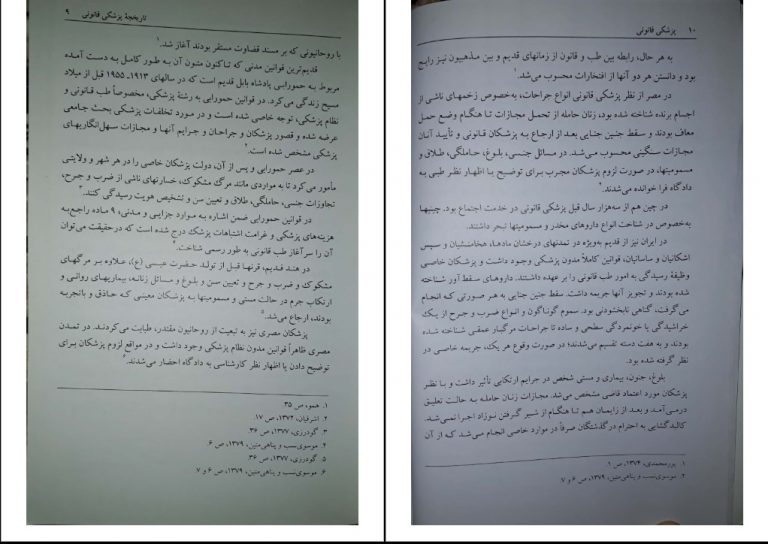 تاریخچهٔ پزشکی قانونی ۹
با روحانیونی که بر مسند قضاوت مستقر بودند آغاز شد.۱
قدیم‌ترین قوانین مدنی که تاکنون متون آن به طور کامل به دست آمده
مربوط به حمورابی پادشاه بابل قدیم است که در سالهای ۱۹۱۳ـ۱۹۵۵ قبل از میلاد
مسیح زندگی می‌کرد. در قوانین حمورابی به رشتهٔ پزشکی، مخصوصاً طب قانونی و
نظام پزشکی، توجه خاصی شده است و در مورد تخلفات پزشکی بحث جامعی
عرضه شده و قصور پزشکان و جراحان و جرایم آنها و مجازات سهل‌انگاریهای
پزشکی مشخص شده است.۲
در عصر حمورابی و پس از آن، دولت پزشکان خاصی را در هر شهر و ولایتی
مأمور می‌کرد تا به مواردی مانند مرگ مشکوک، خسارتهای ناشی از ضرب و جرح،
تجاوزات جنسی، حاملگی، طلاق و تعیین سن و تشخیص هویت رسیدگی کنند.۳
در قوانین حمورابی ضمن اشاره به موارد جزایی و مدنی، ۹ ماده راجع‌به
هزینه‌های پزشکی و غرامت اشتباهات پزشک درج شده است که درحقیقت می‌توان
آن را سرآغاز طب قانونی به طور رسمی شناخت.۴
در هند قدیم، قرنها قبل از تولد حضرت عیسی (ع)، علاوه بر مرگهای
مشکوک و ضرب و جرح و تعیین سن و بلوغ و مسائل زنانه، بیماریهای روانی و
ارتکاب جرم در حالت مستی و مسمومیتها به پزشکان معینی که حاذق و باتجربه
بودند، ارجاع می‌شد.۵
پزشکان مصری نیز به تبعیت از روحانیون مقتدر، طبابت می‌کردند. در تمدن
مصری ظاهراً قوانین مدون نظام پزشکی وجود داشت و در مواقع لزوم پزشکان برای
توضیح دادن یا اظهار نظر کارشناسی به دادگاه احضار می‌شدند.۶
۱. همو، ص ۳۵
۲. اشرفیان، ۱۳۷۴، ص ۱۷.
۳. گودرزی، ۱۳۷۷، ص ۳۶.
۴. موسوی‌نسب و پناهی‌متین، ۱۳۷۹، ص ۶.
۵. گودرزی، ۱۳۷۷، ص ۳۶.
۶. موسوی‌نسب و پناهی‌متین، ۱۳۷۹، ص ۶ و ۷.
۱۰ پزشکی قانونی
به هر حال، رابطه بین طب و قانون از زمانهای قدیم و بین مذهبیون نیز رایج
بود و دانستن هر دو آنها از افتخارات محسوب می‌شد.۱
در مصر از نظر پزشکی قانونی انواع جراحات، به‌خصوص زخمهای ناشی از
اجسام برنده شناخته شده بود، زنان حامله از تحمل مجازات تا هنگام وضع حمل
معاف بودند و سقط جنین جنایی بعد از ارجاع به پزشکان قانونی و تأیید آنان
مجازات سنگینی محسوب می‌شد. در مسائل جنسی، بلوغ، حاملگی، طلاق و
مسمومیتها، در صورت لزوم پزشکان مجرب برای توضیح یا اظهار نظر طبی به
دادگاه فرا خوانده می‌شدند.۲
در چین هم از سه‌هزار سال قبل پزشکی قانونی در خدمت اجتماع بود. چینیها
به‌خصوص در شناخت انواع داروهای مخدر و مسمومیتها تبحر داشتند.
در ایران نیز از قدیم به‌ویژه در تمدنهای درخشان مادها، هخامنشیان و سپس
اشکانیان و ساسانیان، قوانین کاملاً مدون پزشکی وجود داشت و پزشکان خاصی
وظیفهٔ رسیدگی به امور طب قانونی را بر عهده داشتند. داروهای سقط آور شناخته
شده بودند و تجویز آنها جریمه داشت. سقط جنین جنایی به هر صورتی که انجام
می‌گرفت، گناهی نابخشودنی بود. سموم گوناگون و انواع ضرب و جرح از یک
خراشیدگی یا خونمردگی سطحی و ساده تا جراحات مرگبار عمقی شناخته شده
بودند، و به هفت دسته تقسیم می‌شدند؛ در صورت وقوع هر یک، جریمه خاصی در
نظر گرفته شده بود.
بلوغ، جنون، بیماری و مستی شخص در جرایم ارتکابی تأثیر داشت و با نظر
پزشکان مورد اعتماد قاضی مشخص می‌شد. مجازات زنان حامله به حالت تعلیق
درمی‌آمد و بعد از زایمان هم تا هنگام از شیر گرفتن نوزاد اجرا نمی‌شد.
کالبدگشایی به احترام درگذشتگان صرفاً در موارد خاصی انجام می‌شد که از آن
۱. پورمحمدی، ۱۳۷۴، ص ۱.
۲. موسوی‌نسب و پناهی‌متین، ۱۳۷۹، ص ۶ و ۷.